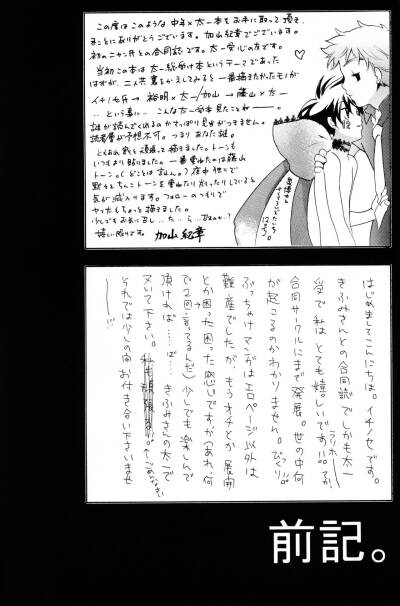 この度はこのような中年×太一本をお手に取って頂き
まことにありがとうございます。加山紀章でございます。
初のニャン氏との合同誌です。太一受心の友です。
当初この本は太一総受け本というテーマであった
はずが、二人共蓋をかえしてみると一番描きたかったモノが
イチノセ氏→裕明×太一/加山→藤山×太一
…という事に…こんな太一受本見たことねー。
誰が読んでくれるのかさっぱり見当がつきません。
読者層が予想不可。つまりあなた謎。
とりあえず色々頑張って描きました。トーンも
いつもより貼りました。一番重ねたのは藤山
トーン。
気が滅入ります。フォローのつもりで
ちょっと描きました。
嬉しい限りです。加山紀章
はじめましてこんにちは。イチノセです。
きふみさんとの合同誌でしかも太一
受で私はとても嬉しいです!!
合同サークルにまで発展。世の中何
が起こるのかわかりません。びっくり。
ぶっちゃけマンガはエロページ以外は
難産でしたが、もうオチとか展開
とか困った困った感じですが(あれ、何
で2回言ってるんだ)少しでも楽しんで
頂ければ…ば…。きふみさんの太一で
ヌいて下さい。
それでは少しの間お付き合い下さいませ
前記。